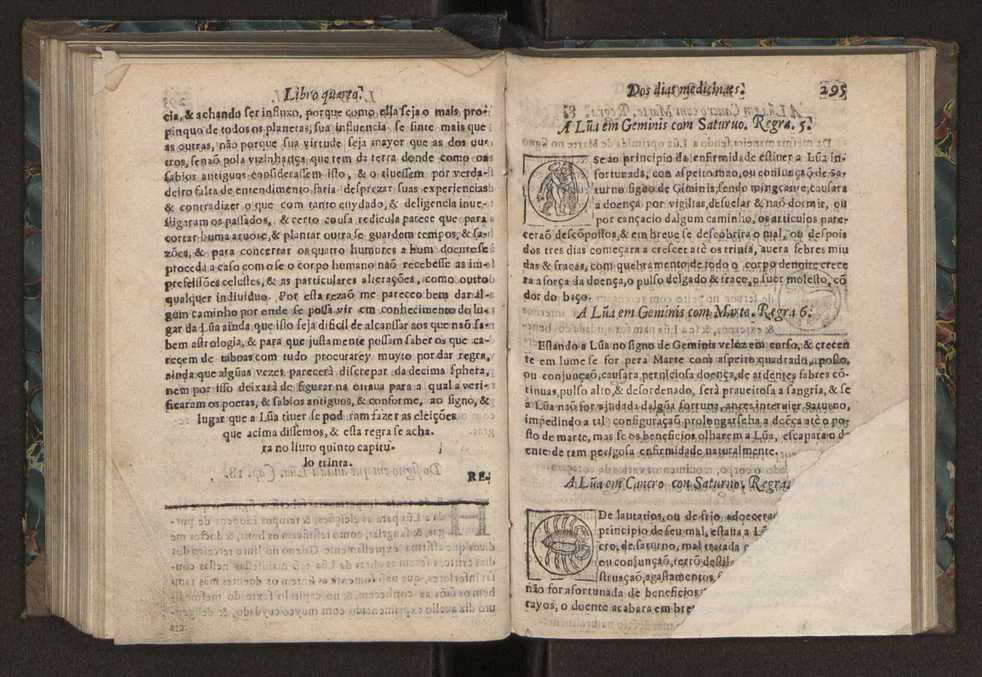 Libro quarto.
cia, & achando ser influxo, porque como ella seja o mais pro-
pinquo de todos os planetas, sua influencia se sinte mais que
as outras, não porque sua virtude seja mayor que as dos ou-
tros, senaõ pola vizinhança que tem da terra donde como os
sabios antiguos considerassem isto, & o tiuessem por verda-
deiro falta de entendimento saria desprezar suas experiencias
& contradizer o que com tanto cuydado, & deligencia inue-
stigaram os passados, & certo cousa redicula parece que para
cortar huma aruore, & plantar outra se guardem tempos, & sa-
zões, & para concertar os quatro humores a hum doente se
proceda a caso como se o corpo humano naõ recebesse as im-
pressiões celestes, & as particulares alterações, como outro
qualquer indiuiduo. Por esta rezaõ me pareceo bem dar al-
gum caminho por onde se possa vir em conhecimento do lu-
gar da Lũa ainda que isto seja dificil de alcanssar aos que naõ sa-
bem astrologia, & para que justamente possam saber os que ca-
recem de taboas com tudo procurarey muyto por dar regra,
ainda que algũas vezes parecerá discrepar da decima sphera,
nem por isso deixará de figurar na oitaua para a qual a veri-
ficaram os poetas, & sabios antiguos, & conforme, ao signo, &
lugar que a Lũa tiuer se pod ram fazer as eleições
que acima dissemos, & esta regra se acha-
ra no liuro quinto capitu-
lo trinta.
RE-
Dos dias medicinaes. 295
A Lũa em Geminis com Saturno. Regra. 5.
Se ao principio da enfirmidade estiuer a Lũa in-
fortunada, com aspeito mao, ou conjunçaõ de Sa-
turno signo de Giminis, sendo mingoante, causara
a doença por vigilias, desuelar & naõ dormir, ou
por cançacio dalgum caminho, os articulos pare-
ceraõ descõpostos, & em breue se descobrira o mal, ou despois
dos tres dias começara a crescer até os trinta, auera febres miu
das & fracas, com quebramento de todo o corpo de noite crece
ra a força da doença, o pulso delgado & fraco, o suor molesto, cõ
dor do baço.
A Lũa em Geminis com Marte. Regra 6.
Estando a Lũa no signo de Geminis veloz em curso, & crecen
te em lume se for pera Marte com aspeito quadrado, aposto,
ou conjuncçaõ, causara perniciosa doença, de ardentes fabres cõ-
tinuas, pulso alto, & desordenado, será praueitosa a sangria, & se
a Lũa naõ for ajudada dalgũa fortuna, antes interuier Saturno,
impedindo a tal configuraçaõ prolongarseha a doeça até o po-
sto de marte, mas se os beneficios olharem a Lũa, escapara o do
ente de tam perigosa enfirmidade naturalmente.
A Lũa em Cancro com Saturno. Regra.
De lauatorios, ou de frio, adoecera
principio de seu mal, estaua a Lũ
cro, de saturno, mal tratada
ou conjunção, terrõ destil
não for afortunada de beneficios
rayos, o doente acabara em bre